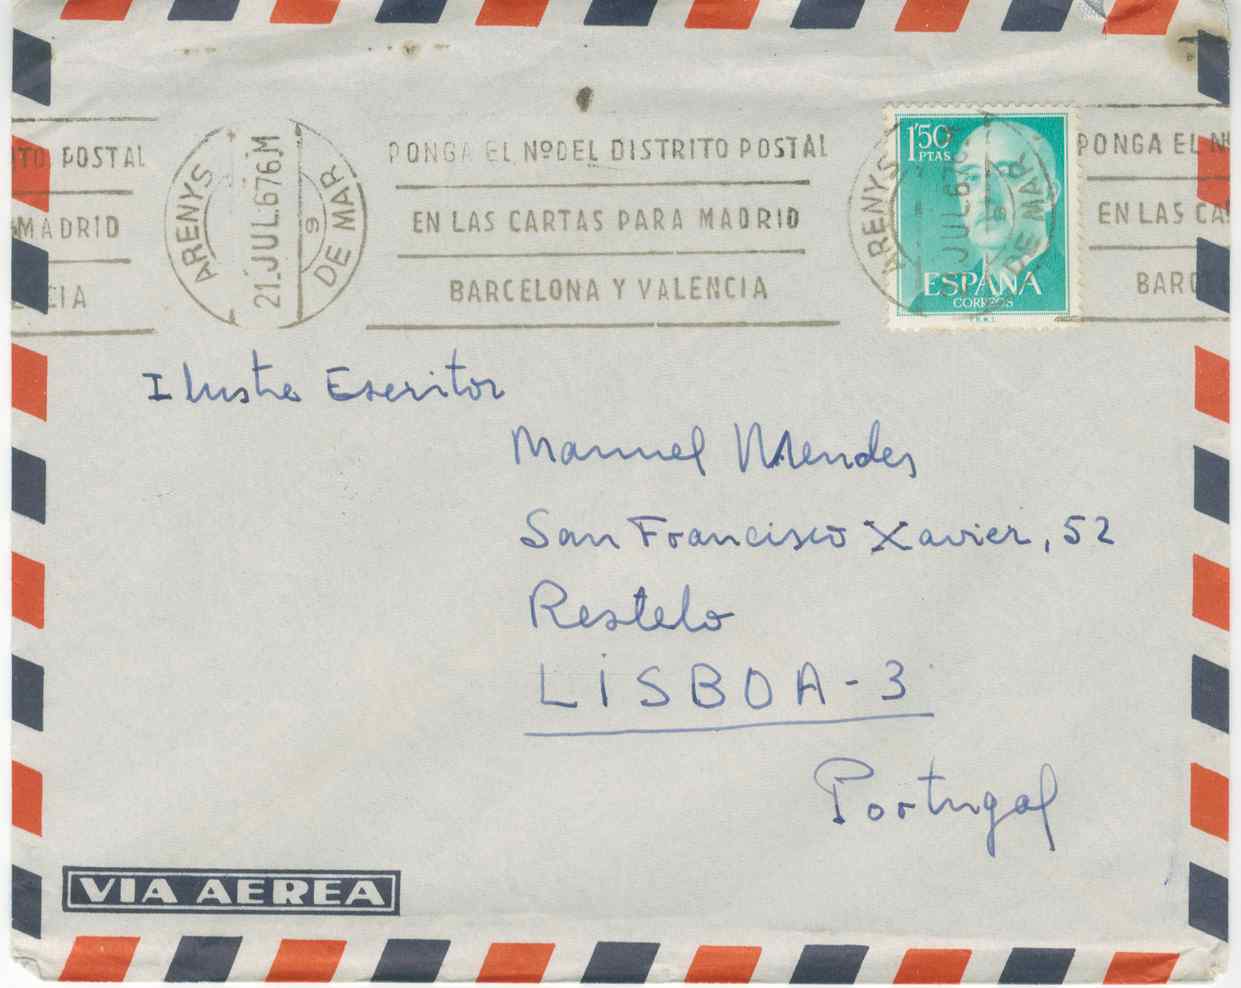 TO POSTAL
MADRID
CIA
ARENYS DE MAR
21.JUL.67 6.M
9
PONGA EL Nº DEL DISTRITO POSTAL
EN LAS CARTAS PARA MADRID
BARCELONA Y VALENCIA
1'50
PTAS
ESPAÑA
CORREOS
ARENYS DE MAR
JUL.67
PONGA EL Nº
EN LAS CA
BARC
Ilustre Escritor
Manuel Mendes
San Francisco Xavier, 52
Restelo
LISBOA-3
Portugal
VIA AEREA